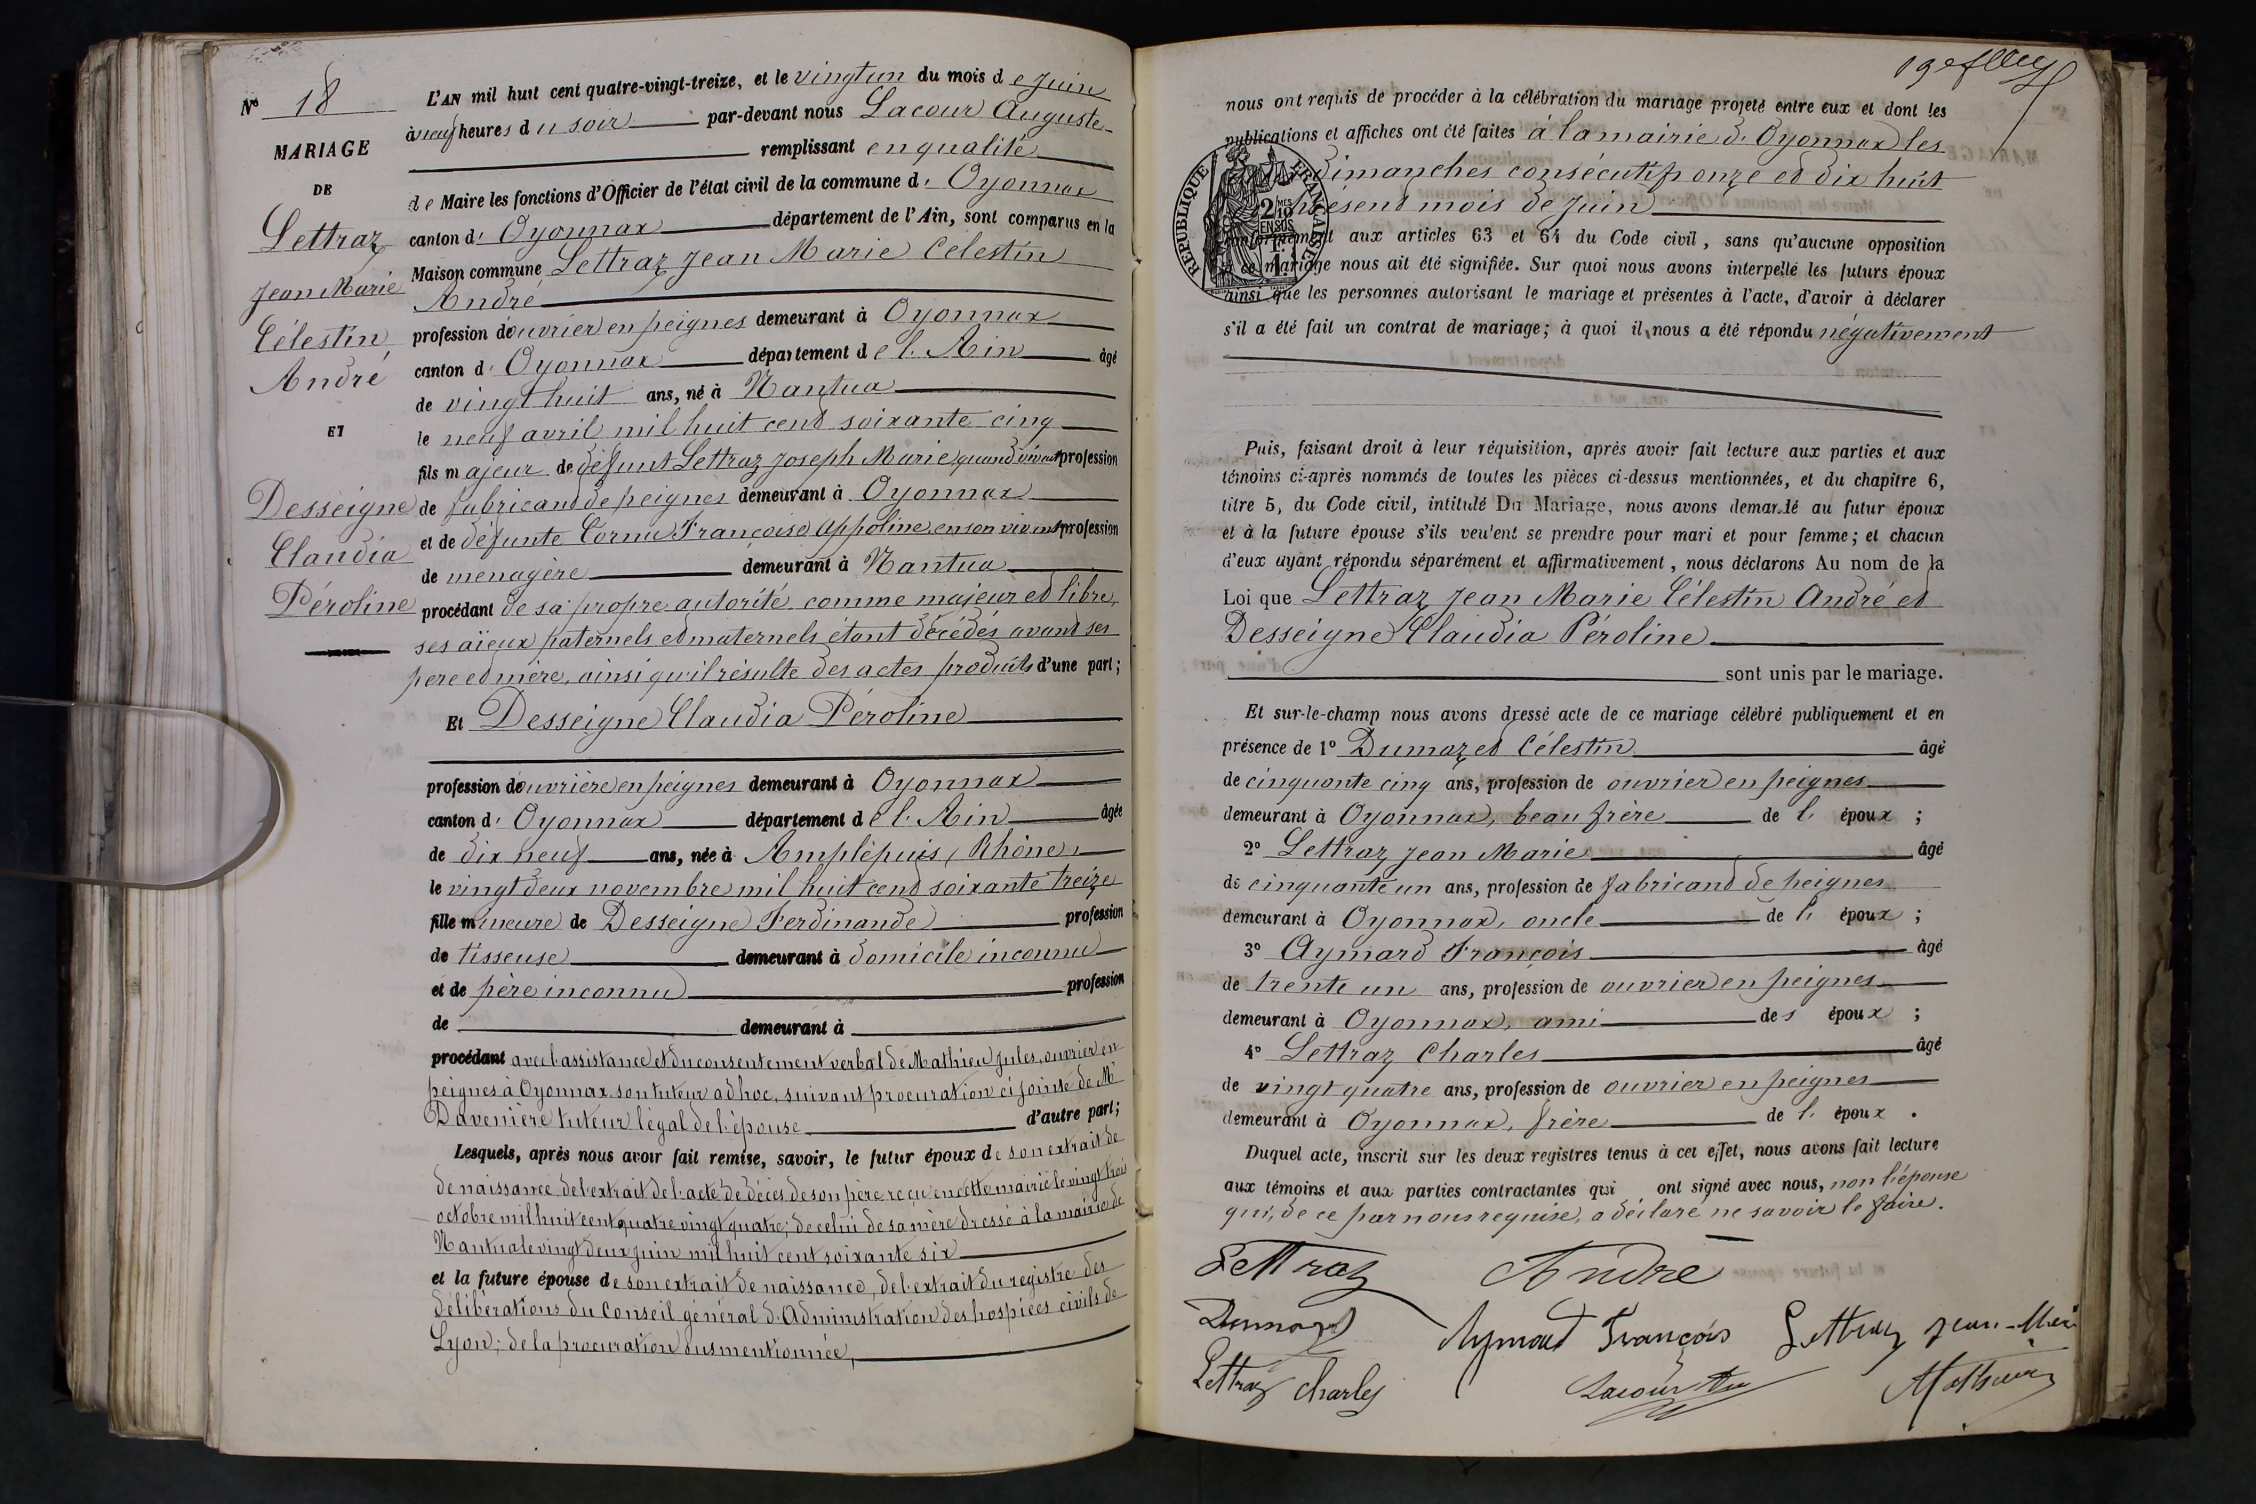 Nº 18
MARIAGE
DE
Lettraz
Jean Marie
Célestin
André
ET
Desseigne
Claudia
Péroline
L'AN mil huit cent quatre-vingt-treize, et le vingt un du mois de Juin
à neuf heures du soir par-devant nous Lacour Auguste
remplissant en qualité
de Maire les fonctions d'Officier de l'état civil de la commune d' Oyonnax
canton d' Oyonnax département de l'Ain, sont comparus en la
Maison commune Lettraz Jean Marie Célestin
André
profession d'ouvrier en peignes demeurant à Oyonnax
canton d' Oyonnax département de l'Ain âgé
de vingt huit ans, né à Nantua
le neuf avril mil huit cent soixante cinq
fils majeur de défunt Lettraz Joseph Marie quand vivait profession
de fabricant de peignes demeurant à Oyonnax
et de défunte Cornu Françoise Appoline en son vivant profession
de ménagère demeurant à Nantua
procédant de sa propre autorité comme majeur et libre,
ses aïeux paternels et maternels étant décédés avant ses
père et mère, ainsi qu'il résulte des actes produits d'une part;
Et Desseigne Claudia Péroline
profession d'ouvrière en peignes demeurant à Oyonnax
canton d' Oyonnax département de l'Ain âgée
de dix neuf ans, née à Amplépuis, Rhône,
le vingt deux novembre mil huit cent soixante treize
fille mineure de Desseigne Ferdinande profession
de tisseuse demeurant à domicile inconnu
et de père inconnu profession
de demeurant à
procédant avec l'assistance et du consentement verbal de Mathieu Jules, ouvrier en
peignes à Oyonnax son tuteur ad hoc, suivant procuration ci jointe de Mr
Davenière tuteur légal de l'épouse d'autre part;
Lesquels, après nous avoir fait remise, savoir, le futur époux de son extrait de
de naissance, de l'extrait de l'acte de décès de son père reçu en cette mairie le vingt trois
octobre mil huit cent quatre vingt quatre; de celui de sa mère dressé à la mairie de
Nantua le vingt deux juin mil huit cent soixante six
et la future épouse de son extrait de naissance, de l'extrait du registre des
délibérations du Conseil général d'Administration des hospices civils de
Lyon; de la procuration susmentionnée,
19e
nous ont requis de procéder à la célébration du mariage projeté entre eux et dont les
publications et affiches ont été faites à la mairie d'Oyonnax les
dimanches consécutifs onze et dix huit
présent mois de juin
RÉPUBLIQUE FRANÇAISE
2 MES
10
EN SUS
conformément aux articles 63 et 64 du Code civil, sans qu'aucune opposition
à ce mariage nous ait été signifiée. Sur quoi nous avons interpellé les futurs époux
ainsi que les personnes autorisant le mariage et présentes à l'acte, d'avoir à déclarer
s'il a été fait un contrat de mariage; à quoi il nous a été répondu négativement
Puis, faisant droit à leur réquisition, après avoir fait lecture aux parties et aux
témoins ci-après nommés de toutes les pièces ci-dessus mentionnées, et du chapitre 6,
titre 5, du Code civil, intitulé Du Mariage, nous avons demandé au futur époux
et à la future épouse s'ils veulent se prendre pour mari et pour femme; et chacun
d'eux ayant répondu séparément et affirmativement, nous déclarons Au nom de la
Loi que Lettraz Jean Marie Célestin André et
Desseigne Claudia Péroline
sont unis par le mariage.
Et sur-le-champ nous avons dressé acte de ce mariage célébré publiquement et en
présence de 1º Dumazet Célestin âgé
de cinquante cinq ans, profession de ouvrier en peignes
demeurant à Oyonnax, beau frère de l' époux ;
2º Lettraz Jean Marie âgé
de cinquante un ans, profession de fabricant de peignes
demeurant à Oyonnax, oncle de l' époux ;
3º Aymard François âgé
de trente un ans, profession de ouvrier en peignes
demeurant à Oyonnax, ami des époux ;
4º Lettraz Charles âgé
de vingt quatre ans, profession de ouvrier en peignes
demeurant à Oyonnax, frère de l' époux .
Duquel acte, inscrit sur les deux registres tenus à cet effet, nous avons fait lecture
aux témoins et aux parties contractantes qui ont signé avec nous, non l'épouse
qui, de ce par nous requise, a déclaré ne savoir le faire.
Lettraz André
Dumazet Aymard François Lettraz Jean-Marie
Lettraz Charles Lacour Mathieu